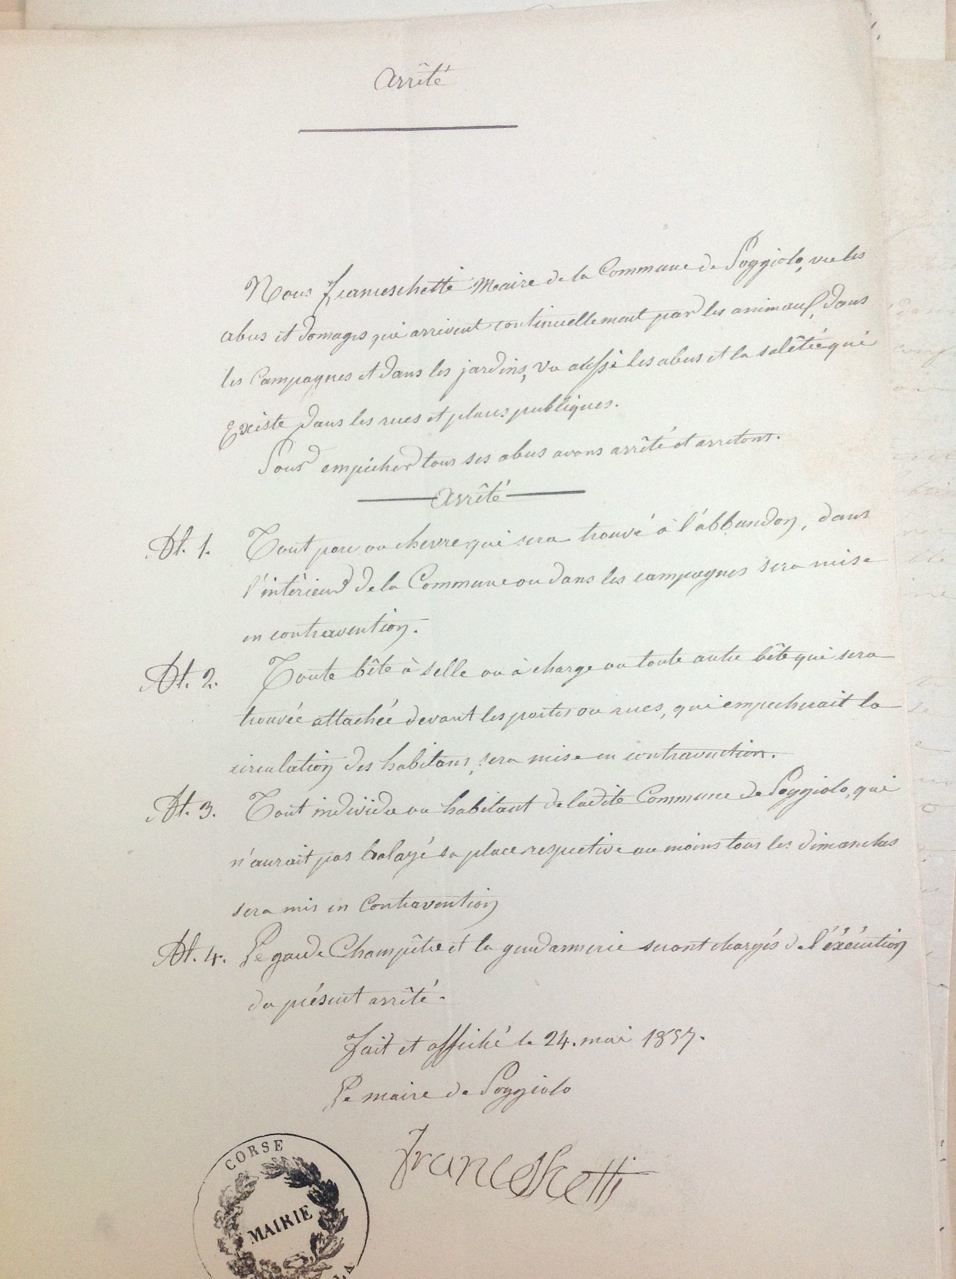 Arrêté
Nous franceschetti Maire de la Commune de Poggiolo, vu les
abus et domages qui arrivent continuellement par les animaux, dans
les Campagnes et dans les jardins, vu aussi les abus et la salêté qui
Existe dans les rues et places publiques.
Pour empêcher tous ses abus avons arrêté et arretons.
Arrêté
At. 1. Tout porc ou chevre qui sera trouvé à l'abbandon, dans
l'intérieur de la Commune ou dans les campagnes sera mise
en contravention.
At. 2. Toute bête à selle ou à charge ou toute autre bête qui sera
trouvée attachée devant les portes ou rues, qui empecherait la
circulation des habitans, sera mise en contravention.
At. 3. Tout individu ou habitant de ladite Commune de Poggiolo, qui
n'aurait pas balayé sa place respective au moins tous les dimanches
sera mis en Contravention
At. 4. Le garde Champêtre et la gendarmerie seront chargés de l'éxécution
du présent arrêté.
fait et affiché le 24. mai 1857.
Le maire de Poggiolo
franceschetti
CORSE
MAIRIE